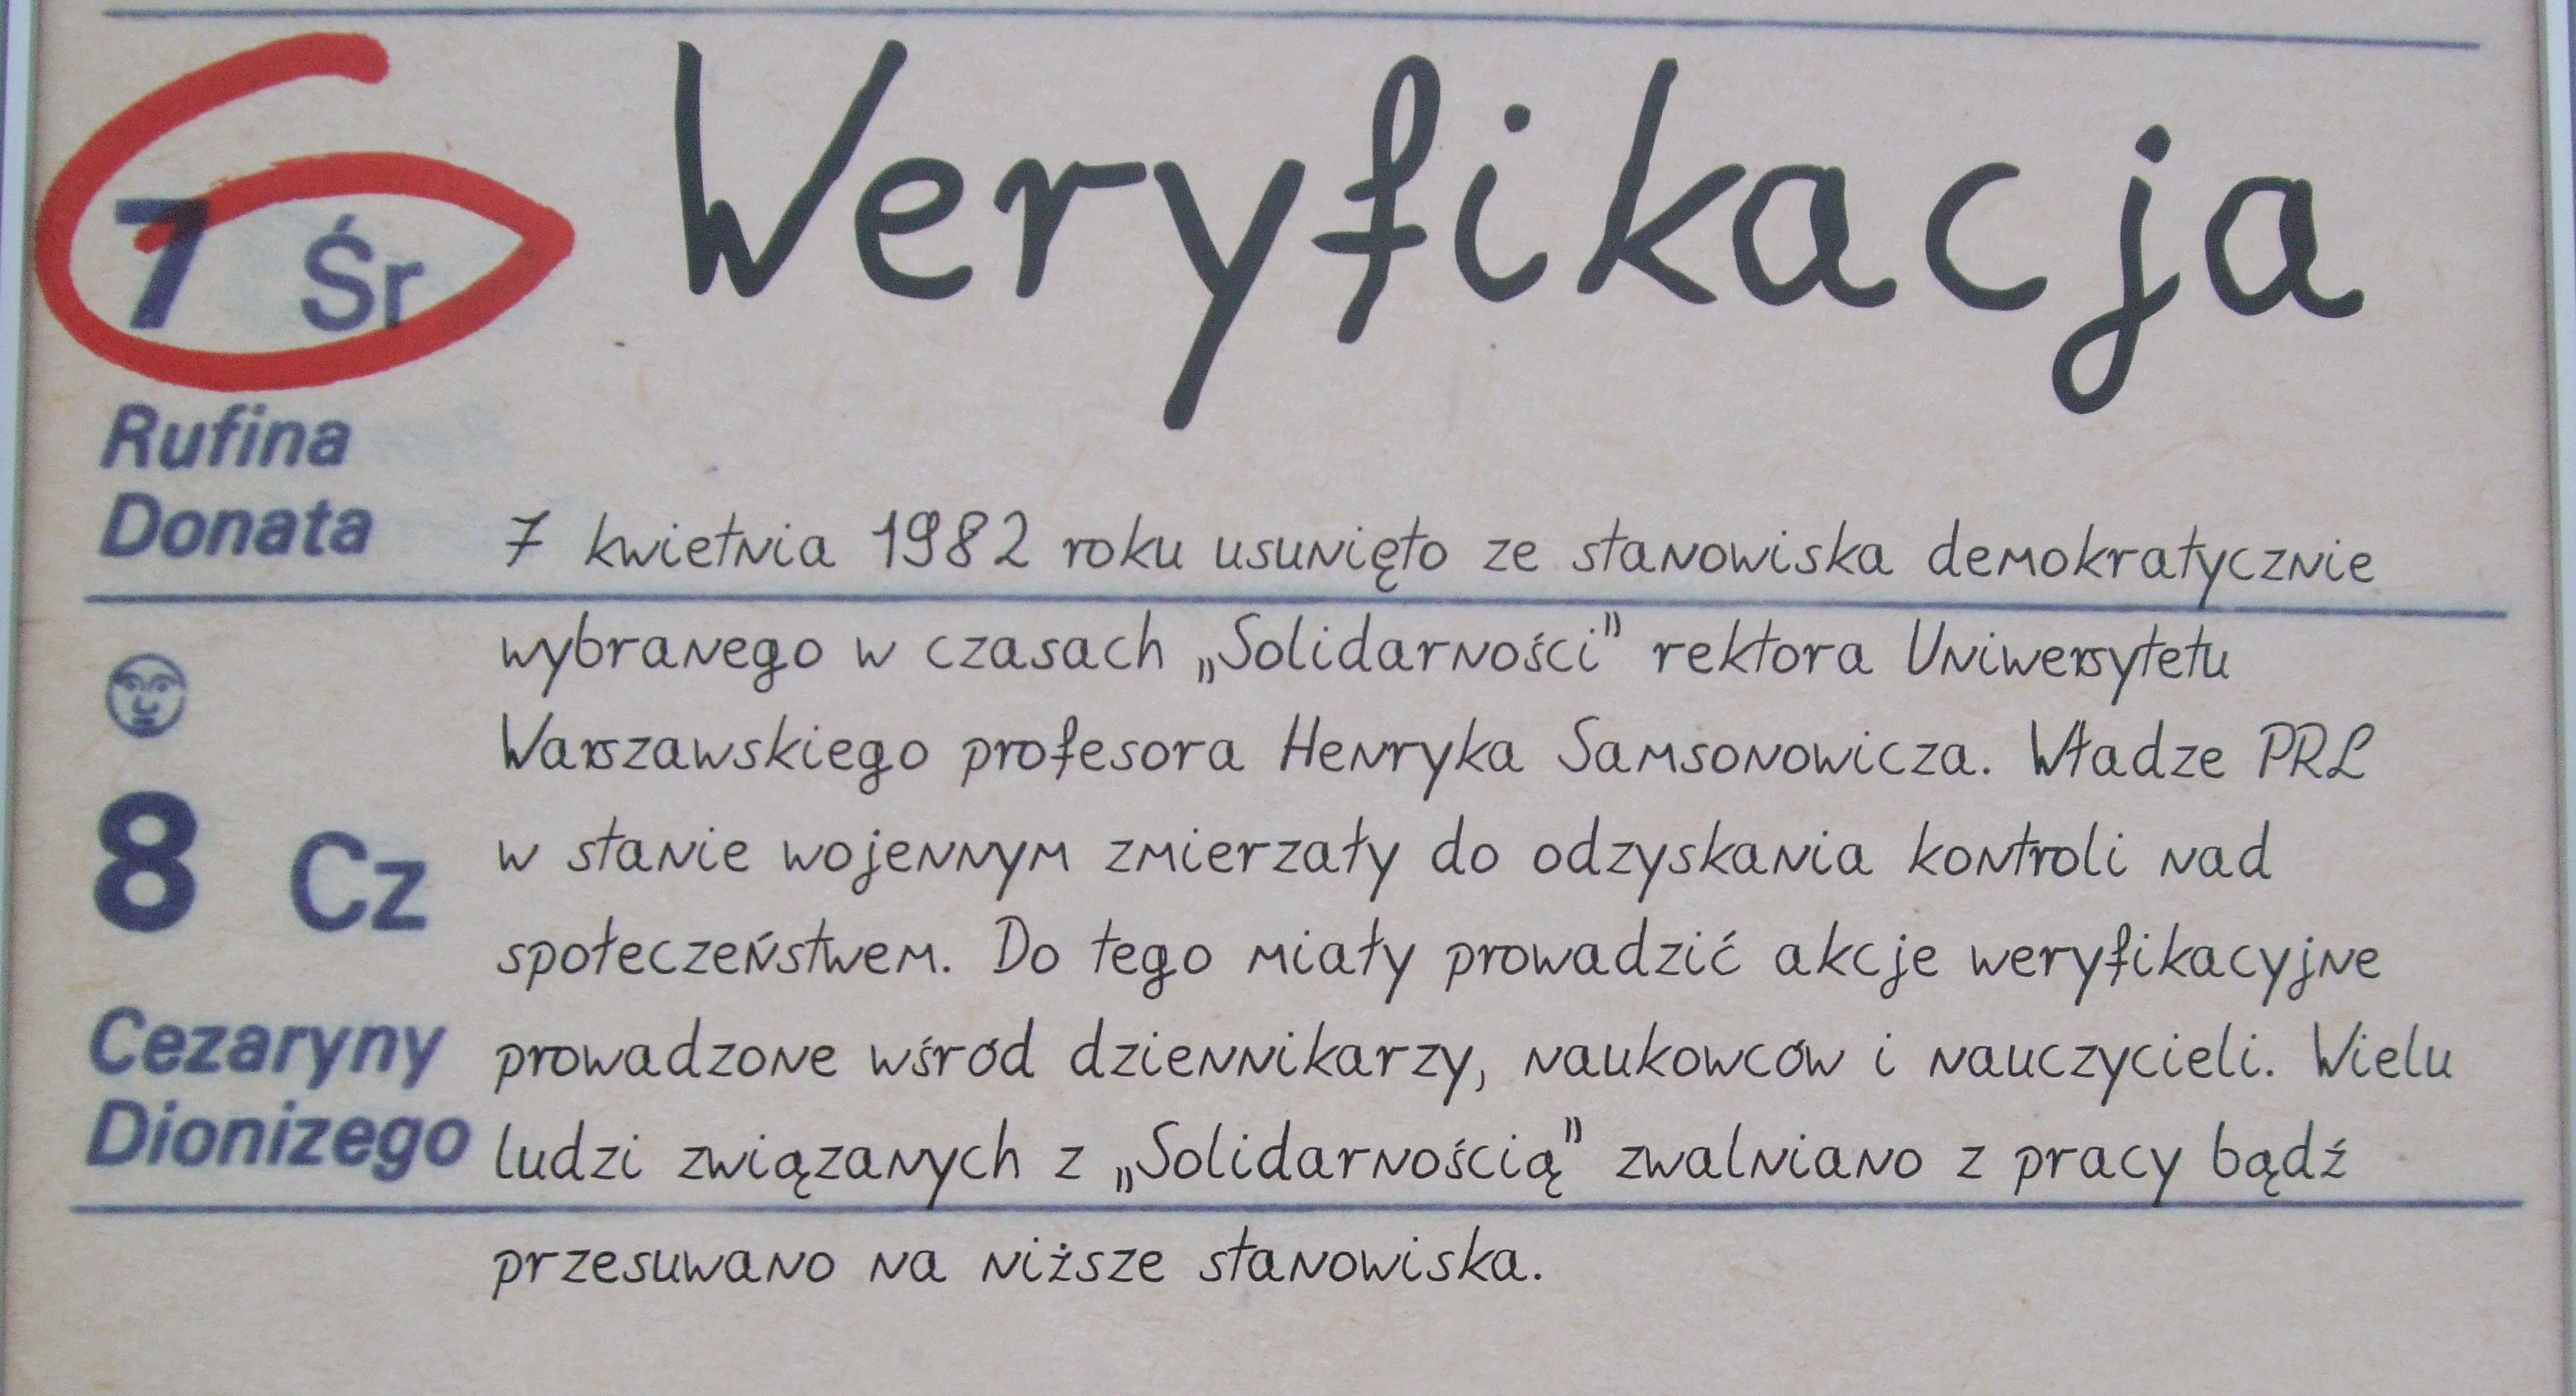 7 Śr
Rufina
Donata
8 Cz
Cezaryny
Dionizego
Weryfikacja
7 kwietnia 1982 roku usunięto ze stanowiska demokratycznie
wybranego w czasach „Solidarności” rektora Uniwersytetu
Warszawskiego profesora Henryka Samsonowicza. Władze PRL
w stanie wojennym zmierzały do odzyskania kontroli nad
społeczeństwem. Do tego miały prowadzić akcje weryfikacyjne
prowadzone wśród dziennikarzy, naukowców i nauczycieli. Wielu
ludzi związanych z „Solidarnością” zwalniano z pracy bądź
przesuwano na niższe stanowiska.